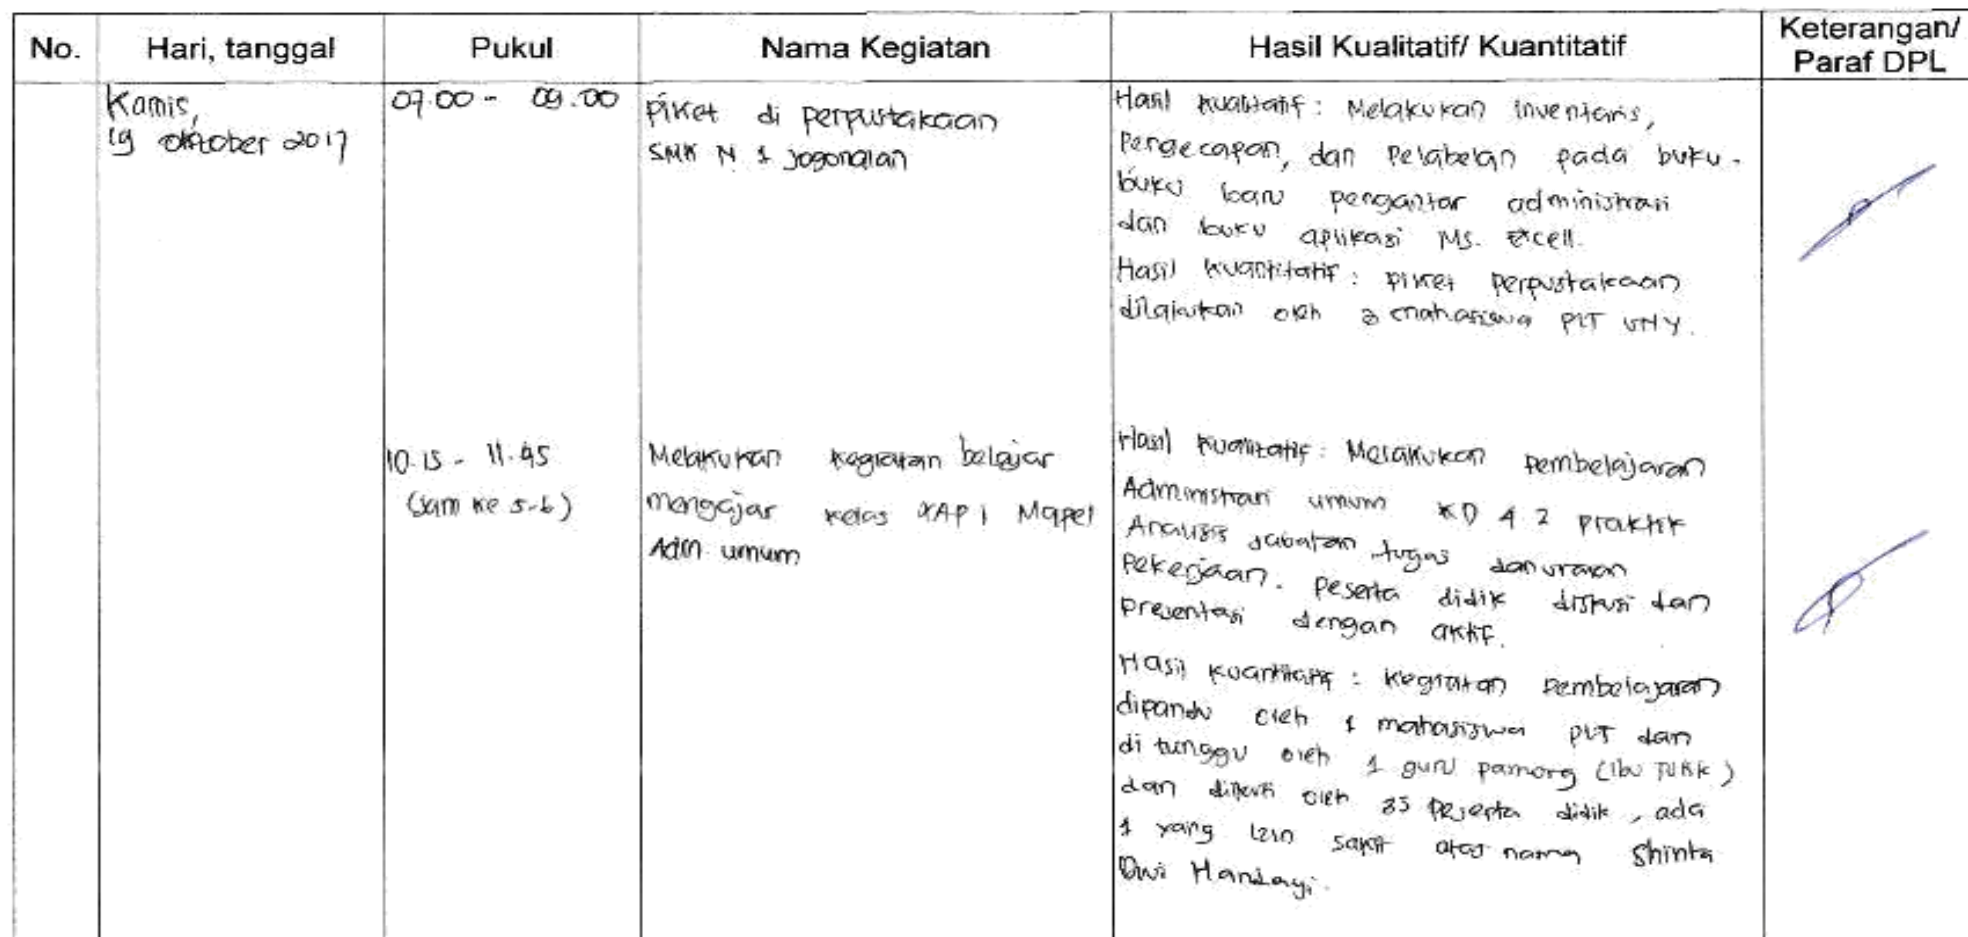 No. Hari, tanggal Pukul Nama Kegiatan Hasil Kualitatif/ Kuantitatif Keterangan/ Paraf DPL
Kamis,
19 oktober 2017
07.00 - 09.00
Piket di perpustakaan
SMK N 1 Jogonalan
Hasil kualitatif : Melakukan inventaris,
Pengecapan, dan Pelabelan pada buku-
buku baru pengantar administrasi
dan buku aplikasi Ms. Excell.
Hasil kuantitatif : piket perpustakaan
dilakukan oleh mahasiswa PLT UNY.
10.15 - 11.45
(Jam ke 5-6)
Melakukan kegiatan belajar
mengajar kelas XAP 1 Mapel
Adm umum
Hasil kualitatif : Melakukan pembelajaran
Administrasi umum KD 4.2 praktik
Analisis jabatan, tugas dan uraian
Pekerjaan. Peserta didik diskusi dan
presentasi dengan aktif.
Hasil kuantitatif : kegiatan pembelajaran
dipandu oleh 1 mahasiswa PLT dan
di tunggu oleh 1 guru pamong (Ibu )
dan diikuti oleh 35 peserta didik, ada
1 yang izin sakit atas nama Shinta
Dwi Handayi.